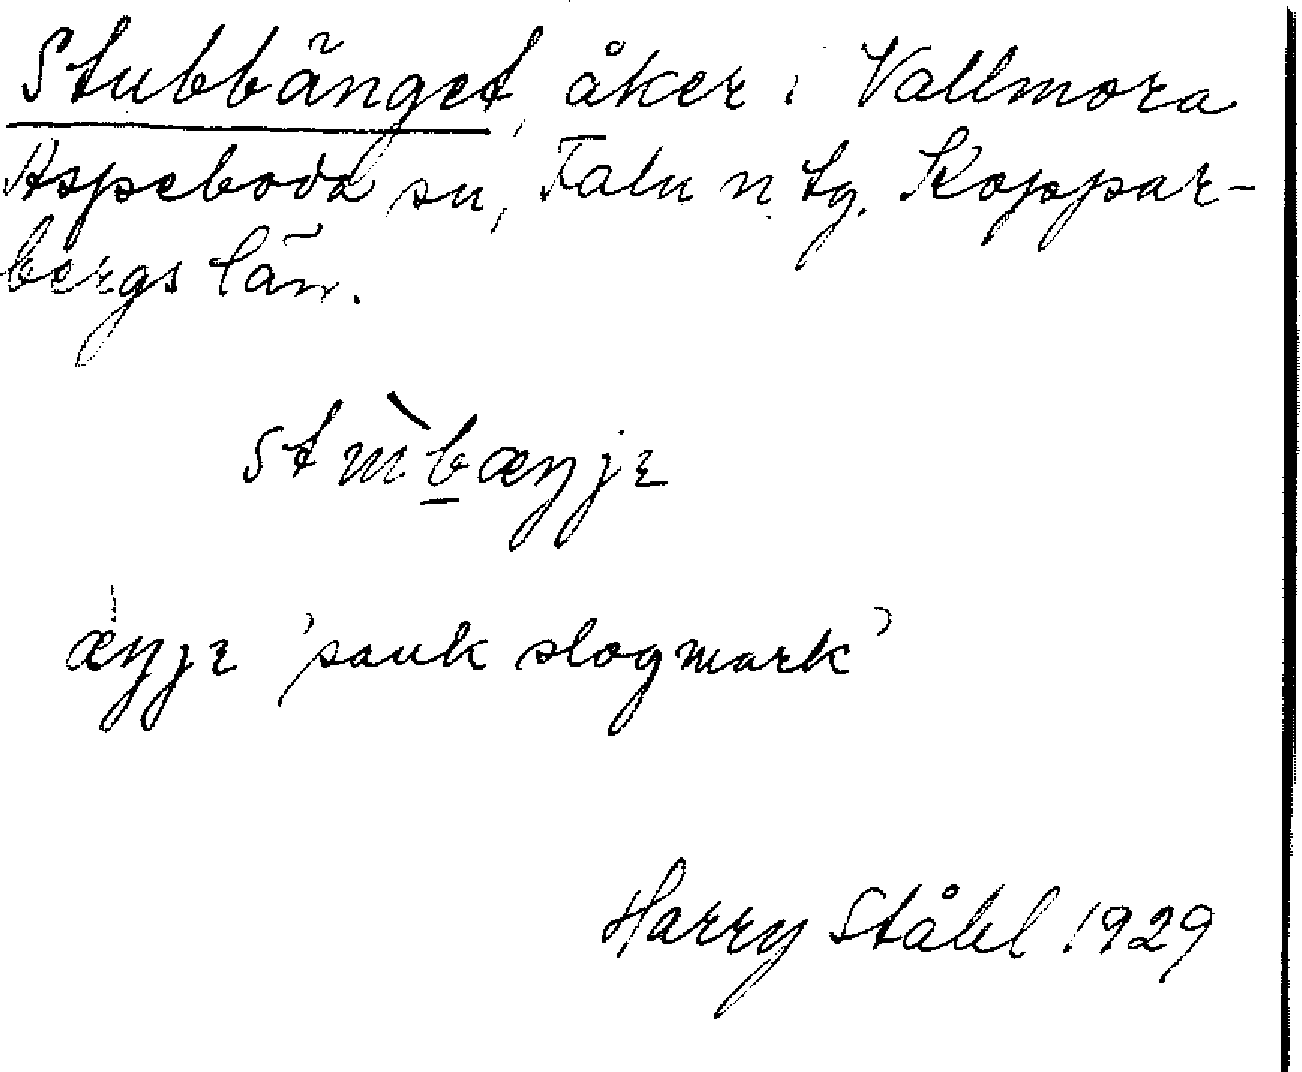 Stubbänget, åker i Vallmora
Aspeboda sn, Falu n. tg. Koppar-
bergs län.
æŋjɛ 'sank slogmark'
Harry Ståhl 1929